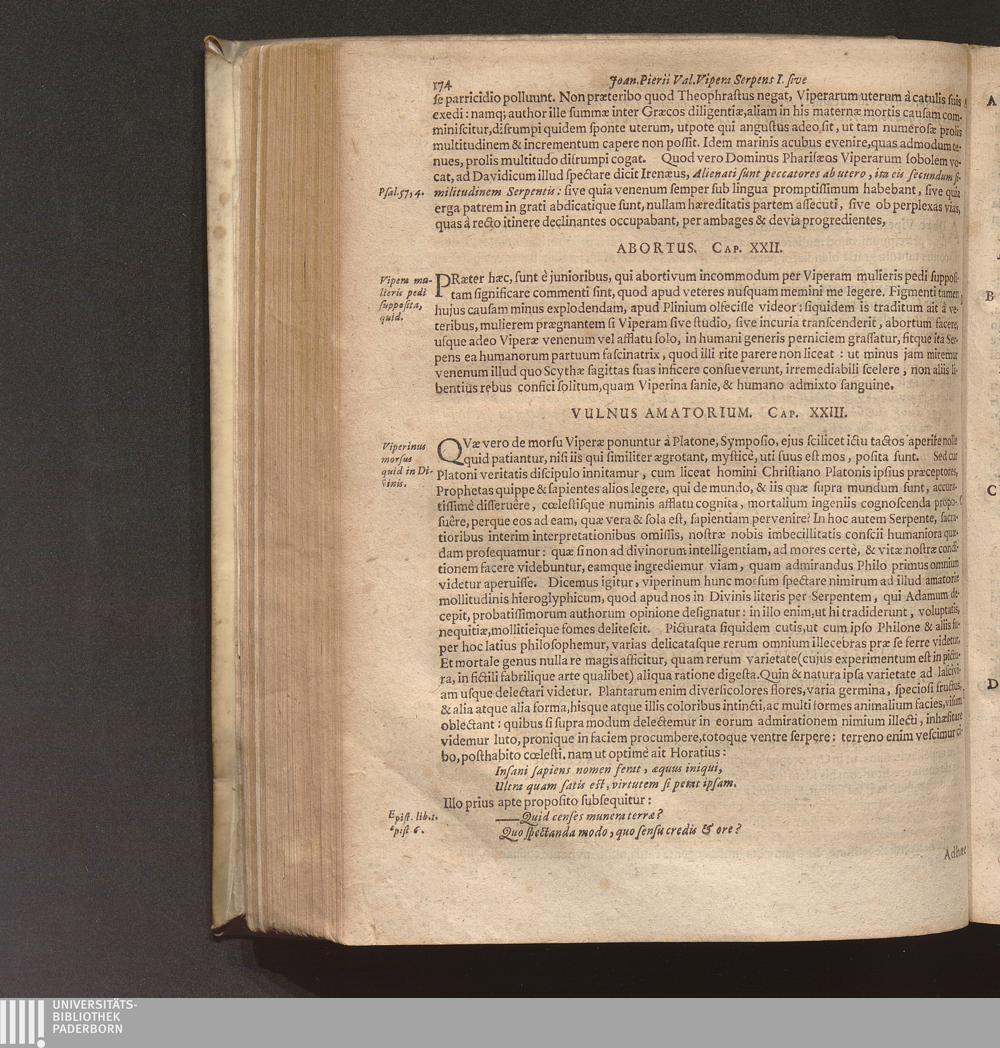 174
Joan. Pierii Val. Vipera Serpens I. sive
se parricidio polluunt. Non præteribo quod Theophrastus negat, Viperarum uterum à catulis suis
exedi: namq; author ille summæ inter Græcos diligentiæ, aliam in his maternæ mortis causam com-
miniscitur, disrumpi quidem sponte uterum, utpote qui angustus adeo sit, ut tam numerosæ prolis
multitudinem & incrementum capere non possit. Idem marinis acubus evenire, quas admodum te-
nues, prolis multitudo disrumpi cogat. Quod vero Dominus Pharisæos Viperarum sobolem vo-
cat, ad Davidicum illud spectare dicit Irenæus, Alienati sunt peccatores ab utero, ira eis secundum si-
Psal. 57, 4.
militudinem Serpentis: sive quia venenum semper sub lingua promptissimum habebant, sive quia
erga patrem in grati abdicatique sunt, nullam hæreditatis partem assecuti, sive ob perplexas vias,
quas à recto itinere declinantes occupabant, per ambages & devia progredientes,
ABORTUS. CAP. XXII.
Vipera mu-
lieris pedi
supposita,
quid.
PRæter hæc, sunt è junioribus, qui abortivum incommodum per Viperam mulieris pedi supposi-
tam significare commenti sint, quod apud veteres nusquam memini me legere. Figmenti tamen
hujus causam minus explodendam, apud Plinium olfecisse videor: siquidem is traditum ait à ve-
teribus, mulierem prægnantem si Viperam sive studio, sive incuria transcenderit, abortum facere,
usque adeo Viperæ venenum vel afflatu solo, in humani generis perniciem grassatur, sitque ita Ser-
pens ea humanorum partuum fascinatrix, quod illi rite parere non liceat: ut minus jam miremur
venenum illud quo Scythæ sagittas suas inficere consueverunt, irremediabili scelere, non aliis li-
bentius rebus confici solitum, quam Viperina sanie, & humano admixto sanguine.
VULNUS AMATORIUM. CAP. XXIII.
Viperinus
morsus
quid in Di-
vinis.
QVæ vero de morsu Viperæ ponuntur à Platone, Symposio, ejus scilicet ictu tactos aperire nolle
quid patiantur, nisi iis qui similiter ægrotant, mysticè, uti suus est mos, posita sunt. Sed cur
Platoni veritatis discipulo innitamur, cum liceat homini Christiano Platonis ipsius præceptores,
Prophetas quippe & sapientes alios legere, qui de mundo, & iis quæ supra mundum sunt, accura-
tissimè disseruêre, cœlestisque numinis afflatu cognita, mortalium ingeniis cognoscenda propo-
suêre, perque eos ad eam, quæ vera & sola est, sapientiam pervenire? In hoc autem Serpente, sacra-
tioribus interim interpretationibus omissis, nostræ nobis imbecillitatis conscii humaniora quæ-
dam prosequamur: quæ si non ad divinorum intelligentiam, ad mores certè, & vitæ nostræ condi-
tionem facere videbuntur, eamque ingrediemur viam, quam admirandus Philo primus omnium
videtur aperuisse. Dicemus igitur, viperinum hunc morsum spectare nimirum ad illud amatoriæ
mollitudinis hieroglyphicum, quod apud nos in Divinis literis per Serpentem, qui Adamum de-
cepit, probatissimorum authorum opinione designatur: in illo enim, ut hi tradiderunt, voluptatis,
nequitiæ, mollitieique fomes delitescit. Picturata siquidem cutis, ut cum ipso Philone & aliis su-
per hoc latius philosophemur, varias delicatasque rerum omnium illecebras præ se ferre videtur,
Et mortale genus nulla re magis afficitur, quam rerum varietate (cujus experimentum est in pictu-
ra, in fictili fabrilique arte qualibet) aliqua ratione digesta. Quin & natura ipsa varietate ad lascivi-
am usque delectari videtur. Plantarum enim diversicolores flores, varia germina, speciosi fructus,
& alia atque alia forma, hisque atque illis coloribus intincti, ac multi formes animalium facies, visum
oblectant: quibus si supra modum delectemur in eorum admirationem nimium illecti, inhæsitare
videmur luto, pronique in faciem procumbere, totoque ventre serpere: terreno enim vescimur ci-
bo, posthabito cœlesti, nam ut optimè ait Horatius:
Insani sapiens nomen ferat, æquus iniqui,
Ultra quam satis est, virtutem si petat ipsam.
Illo prius apte proposito subsequitur:
Epist. lib. 1.
Epist 6.
—— Quid censes munera terræ?
Quo spectanda modo, quo sensu credis & ore?
Adhæc
A
B
C
D
UNIVERSITÄTS-
BIBLIOTHEK
PADERBORN